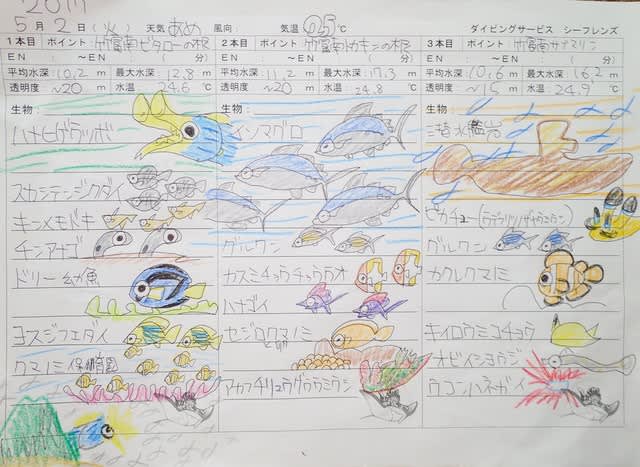 2017
5月2日(火) 天気 あめ 風向: 気温 25℃ ダイビングサービス シーフレンズ
1本目 ポイント 竹富南ビタローの根
EN : 〜EN : ( 分)
平均水深:10.2 m 最大水深:12.8 m
透明度 〜20 m 水温: 24.6 ℃
生物:
ハナヒゲウツボ
スカシテンジクダイ
キンメモドキ
チンアナゴ
ドリー 幼魚
ヨスジフエダイ
クマノミ保育園
2本目 ポイント 竹富南トカキンの根
EN : 〜EN : ( 分)
平均水深:11.2 m 最大水深:17.3 m
透明度 〜20 m 水温: 24.8 ℃
生物:
イソマグロ
グルクン
カスミチョウチョウウオ
ハナゴイ
セジロクマノミ
アカフチリュウグウウミウシ
3本目 ポイント 竹富南サブマリン
EN : 〜EN : ( 分)
平均水深:10.6 m 最大水深:16.2 m
透明度 〜15 m 水温: 24.9 ℃
生物:
潜水艦岩
ピカチュー
グルクン
カクレクマノミ
キイロウミコチョウ
ウコンハネガイ